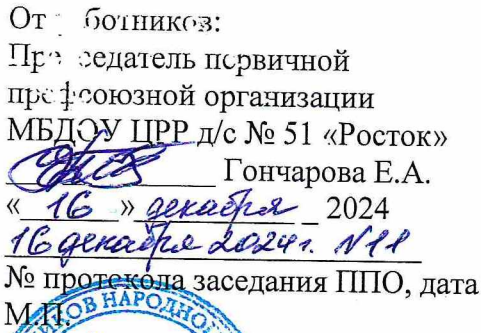 От работников:
Председатель первичной
профсоюзной организации
МБДОУ ЦРР д/с № 51 «Росток»
Гончарова Е.А.
«16» декабря 2024
16 декабря 2024г. №11
№ протокола заседания ППО, дата
М.П.
НАРОДНО